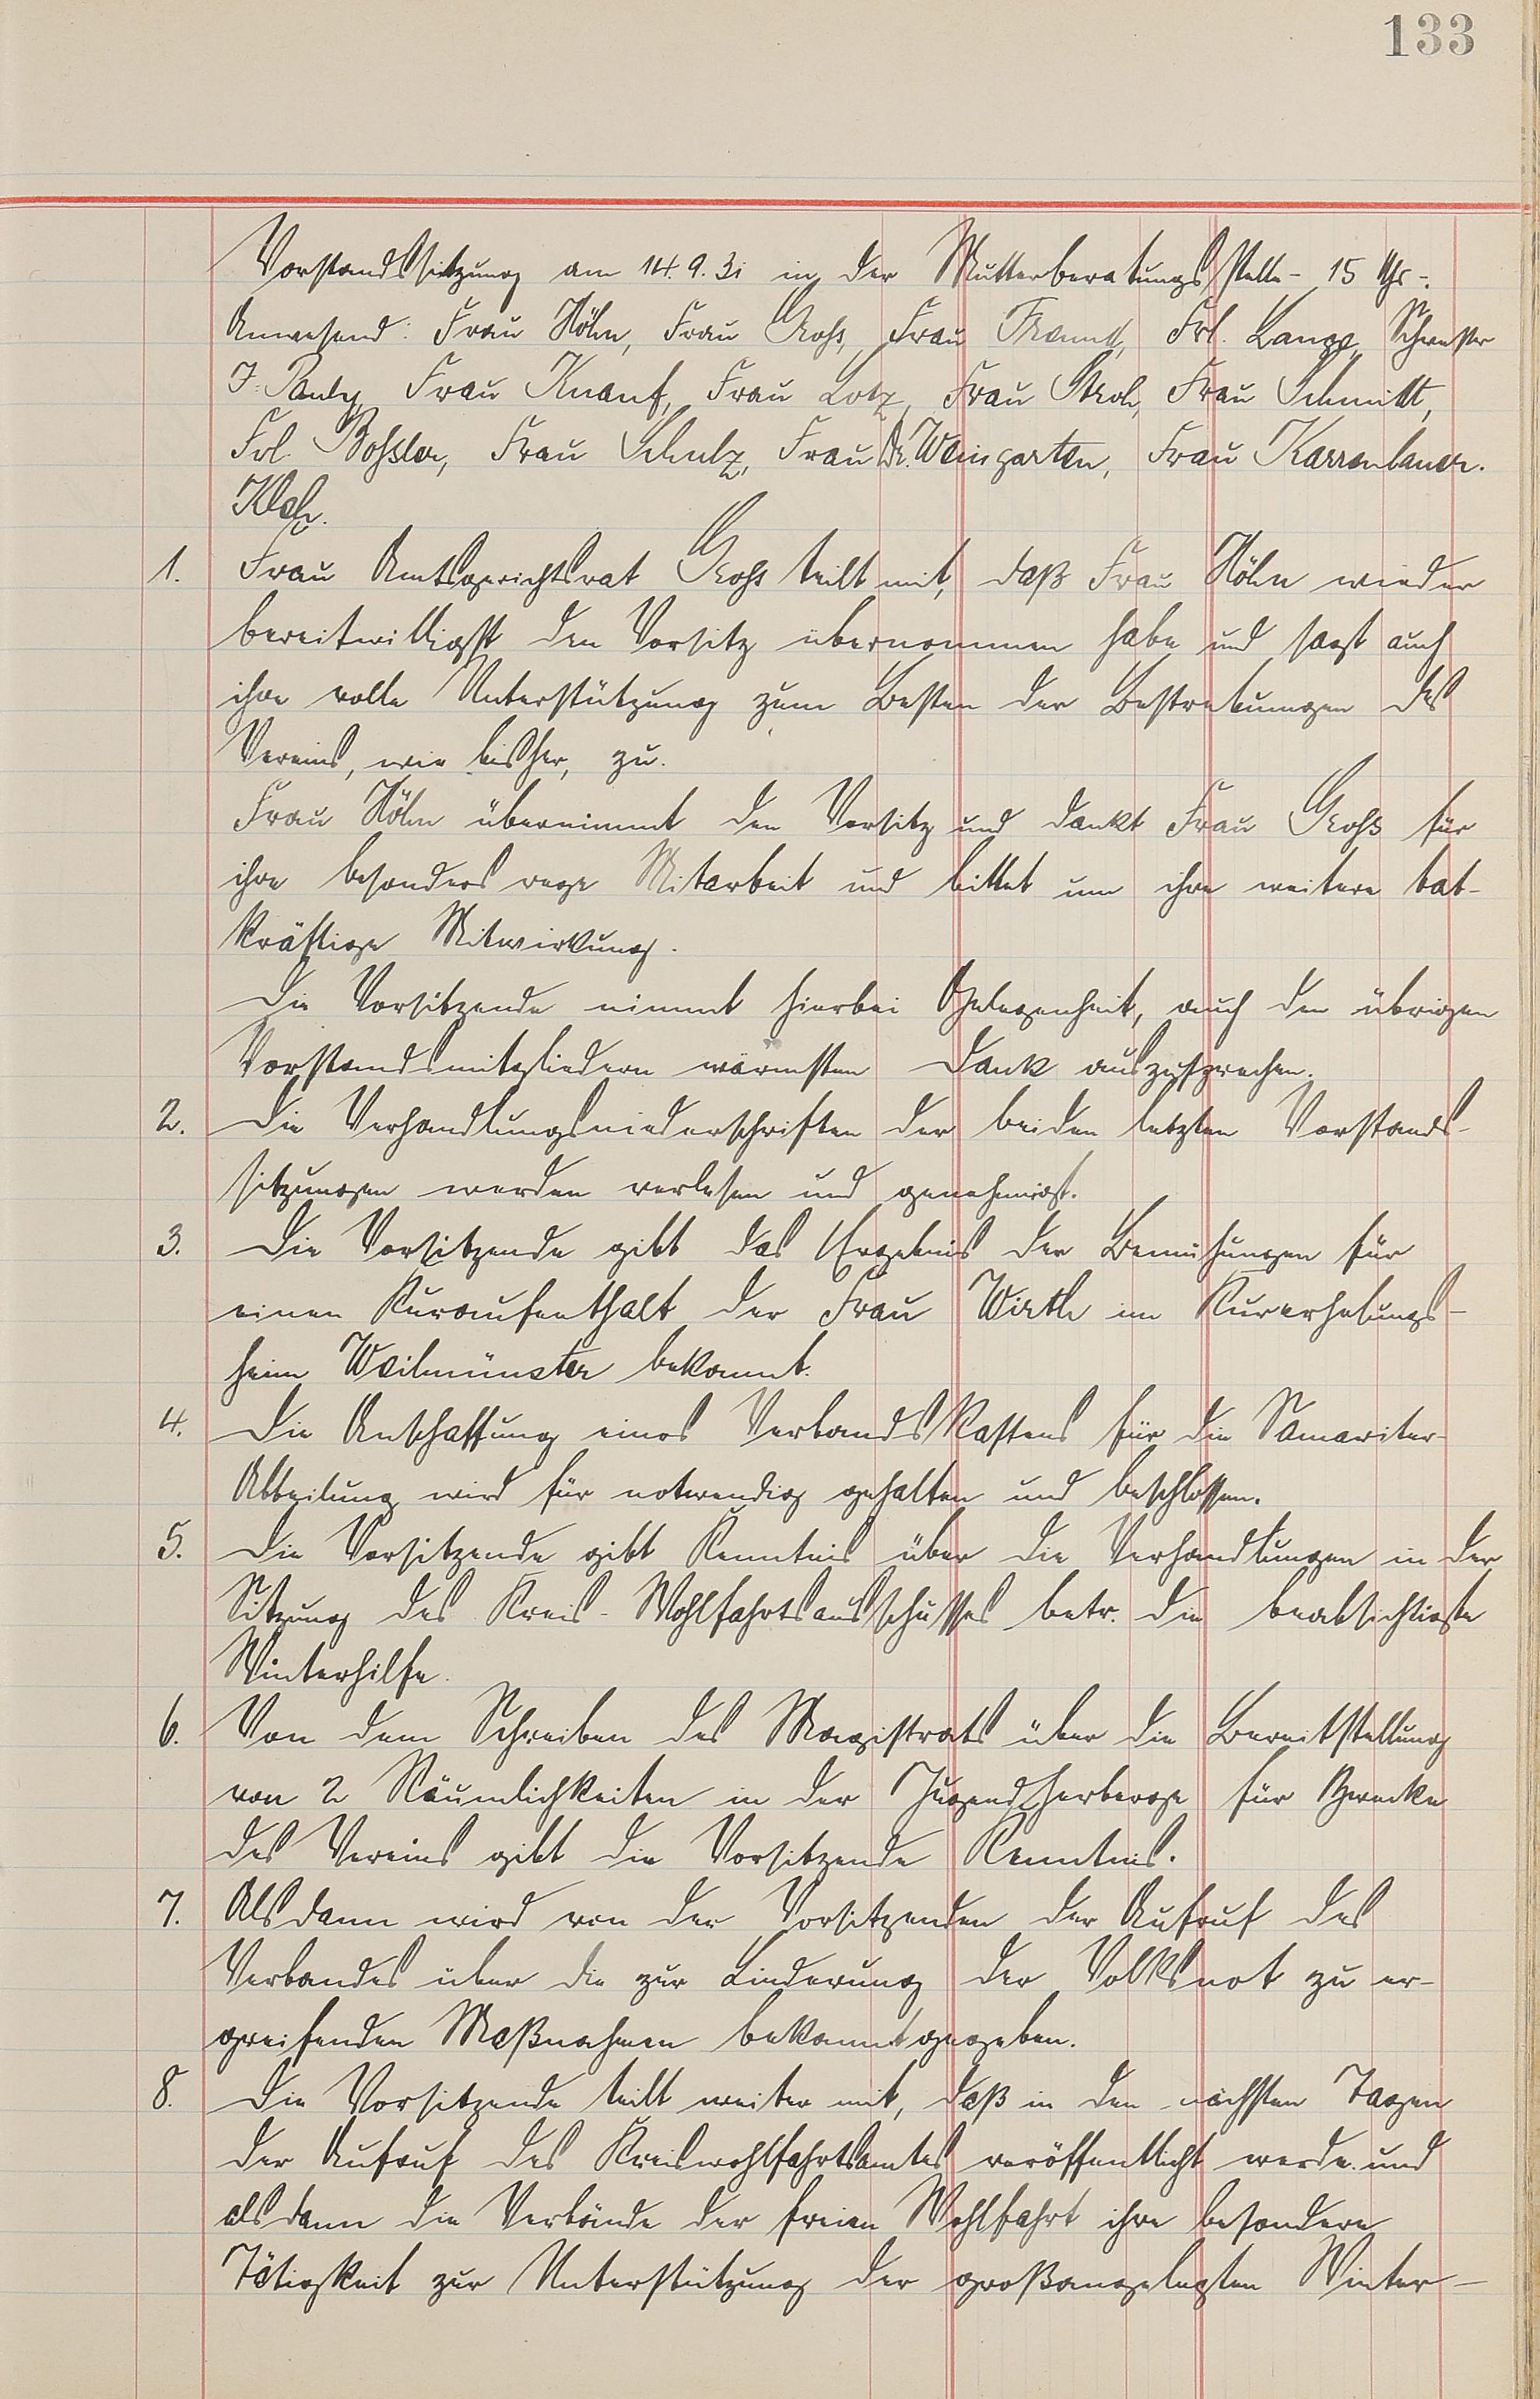 133
Vorstandssitzung am 14.9.31 in der Mutterberatungsstelle - 15 Uhr -.
Anwesend: Frau Höhn, Frau Groß, Frau Frl. Lange, Schwester
J. Pauly, Frau Knauf, Frau Lotz, Frau Stroh, Frau Schmitt,
Frl. Boßler, Frau Schulz, Frau Dr. Weingarten, Frau Karrenbauer.
1. Frau Amtsgerichtsrat Groß teilt mit, daß Frau Höhn wieder
bereitwilligst den Vorsitz übernommen habe und sagt auch
ihre volle Unterstützung zum Besten der Bestrebungen des
Vereins, wie bisher, zu.
Frau Höhn übernimmt den Vorsitz und dankt Frau Groß für
ihre besonders rege Mitarbeit und bittet um ihre weitere tat-
kräftige Mitwirkung.
Die Vorsitzende nimmt hierbei Gelegenheit, auch den übrigen
Vorstandsmitgliedern wärmsten Dank auszusprechen.
2. Die Verhandlungsniederschriften der beiden letzten Vorstands-
sitzungen werden verlesen und genehmigt.
3. Die Vorsitzende gibt das Ergebnis der Bemühungen für
einen Kuraufenthalt der Frau Wirth im Kurerholungs-
heim Weilmünster bekannt.
4. Die Anschaffung eines Verbandskastens für die Samariter-
Abteilung wird für notwendig gehalten und beschlossen.
5. Die Vorsitzende gibt Kenntnis über die Verhandlungen in der
Sitzung des Kreis-Wohlfahrtsausschusses betr. die beabsichtigte
Winterhilfe.
6. Von dem Schreiben des Magistrats über die Bereitstellung
von 2 Räumlichkeiten in der Jugendherberge für Zwecke
des Vereins gibt die Vorsitzende Kenntnis.
7. Alsdann wird von der Vorsitzenden der Aufruf des
Verbandes über die zur Linderung der Volksnot zu er-
greifenden Maßnahmen bekanntgegeben.
8. Die Vorsitzende teilt weiter mit, daß in den nächsten Tagen
der Aufruf des Kreiswohlfahrtsamtes veröffentlicht werde und
alsdann die Verbände der freien Wohlfahrt ihre besondere
Tätigkeit zur Unterstützung der großangelegten Winter-